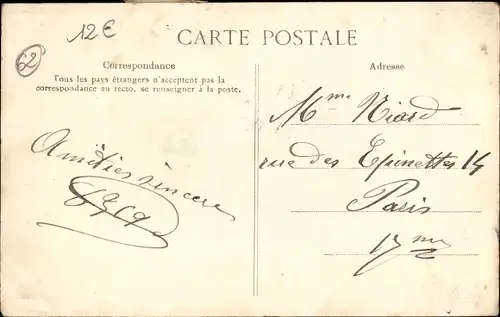 12€
62
CARTE POSTALE
Correspondance
Tous les pays étrangers n'acceptent pas la
correspondance au recto, se renseigner à la poste.
Amitiés sincères
Adresse
Mme Niard
rue des Epinettes 14
Paris
17me